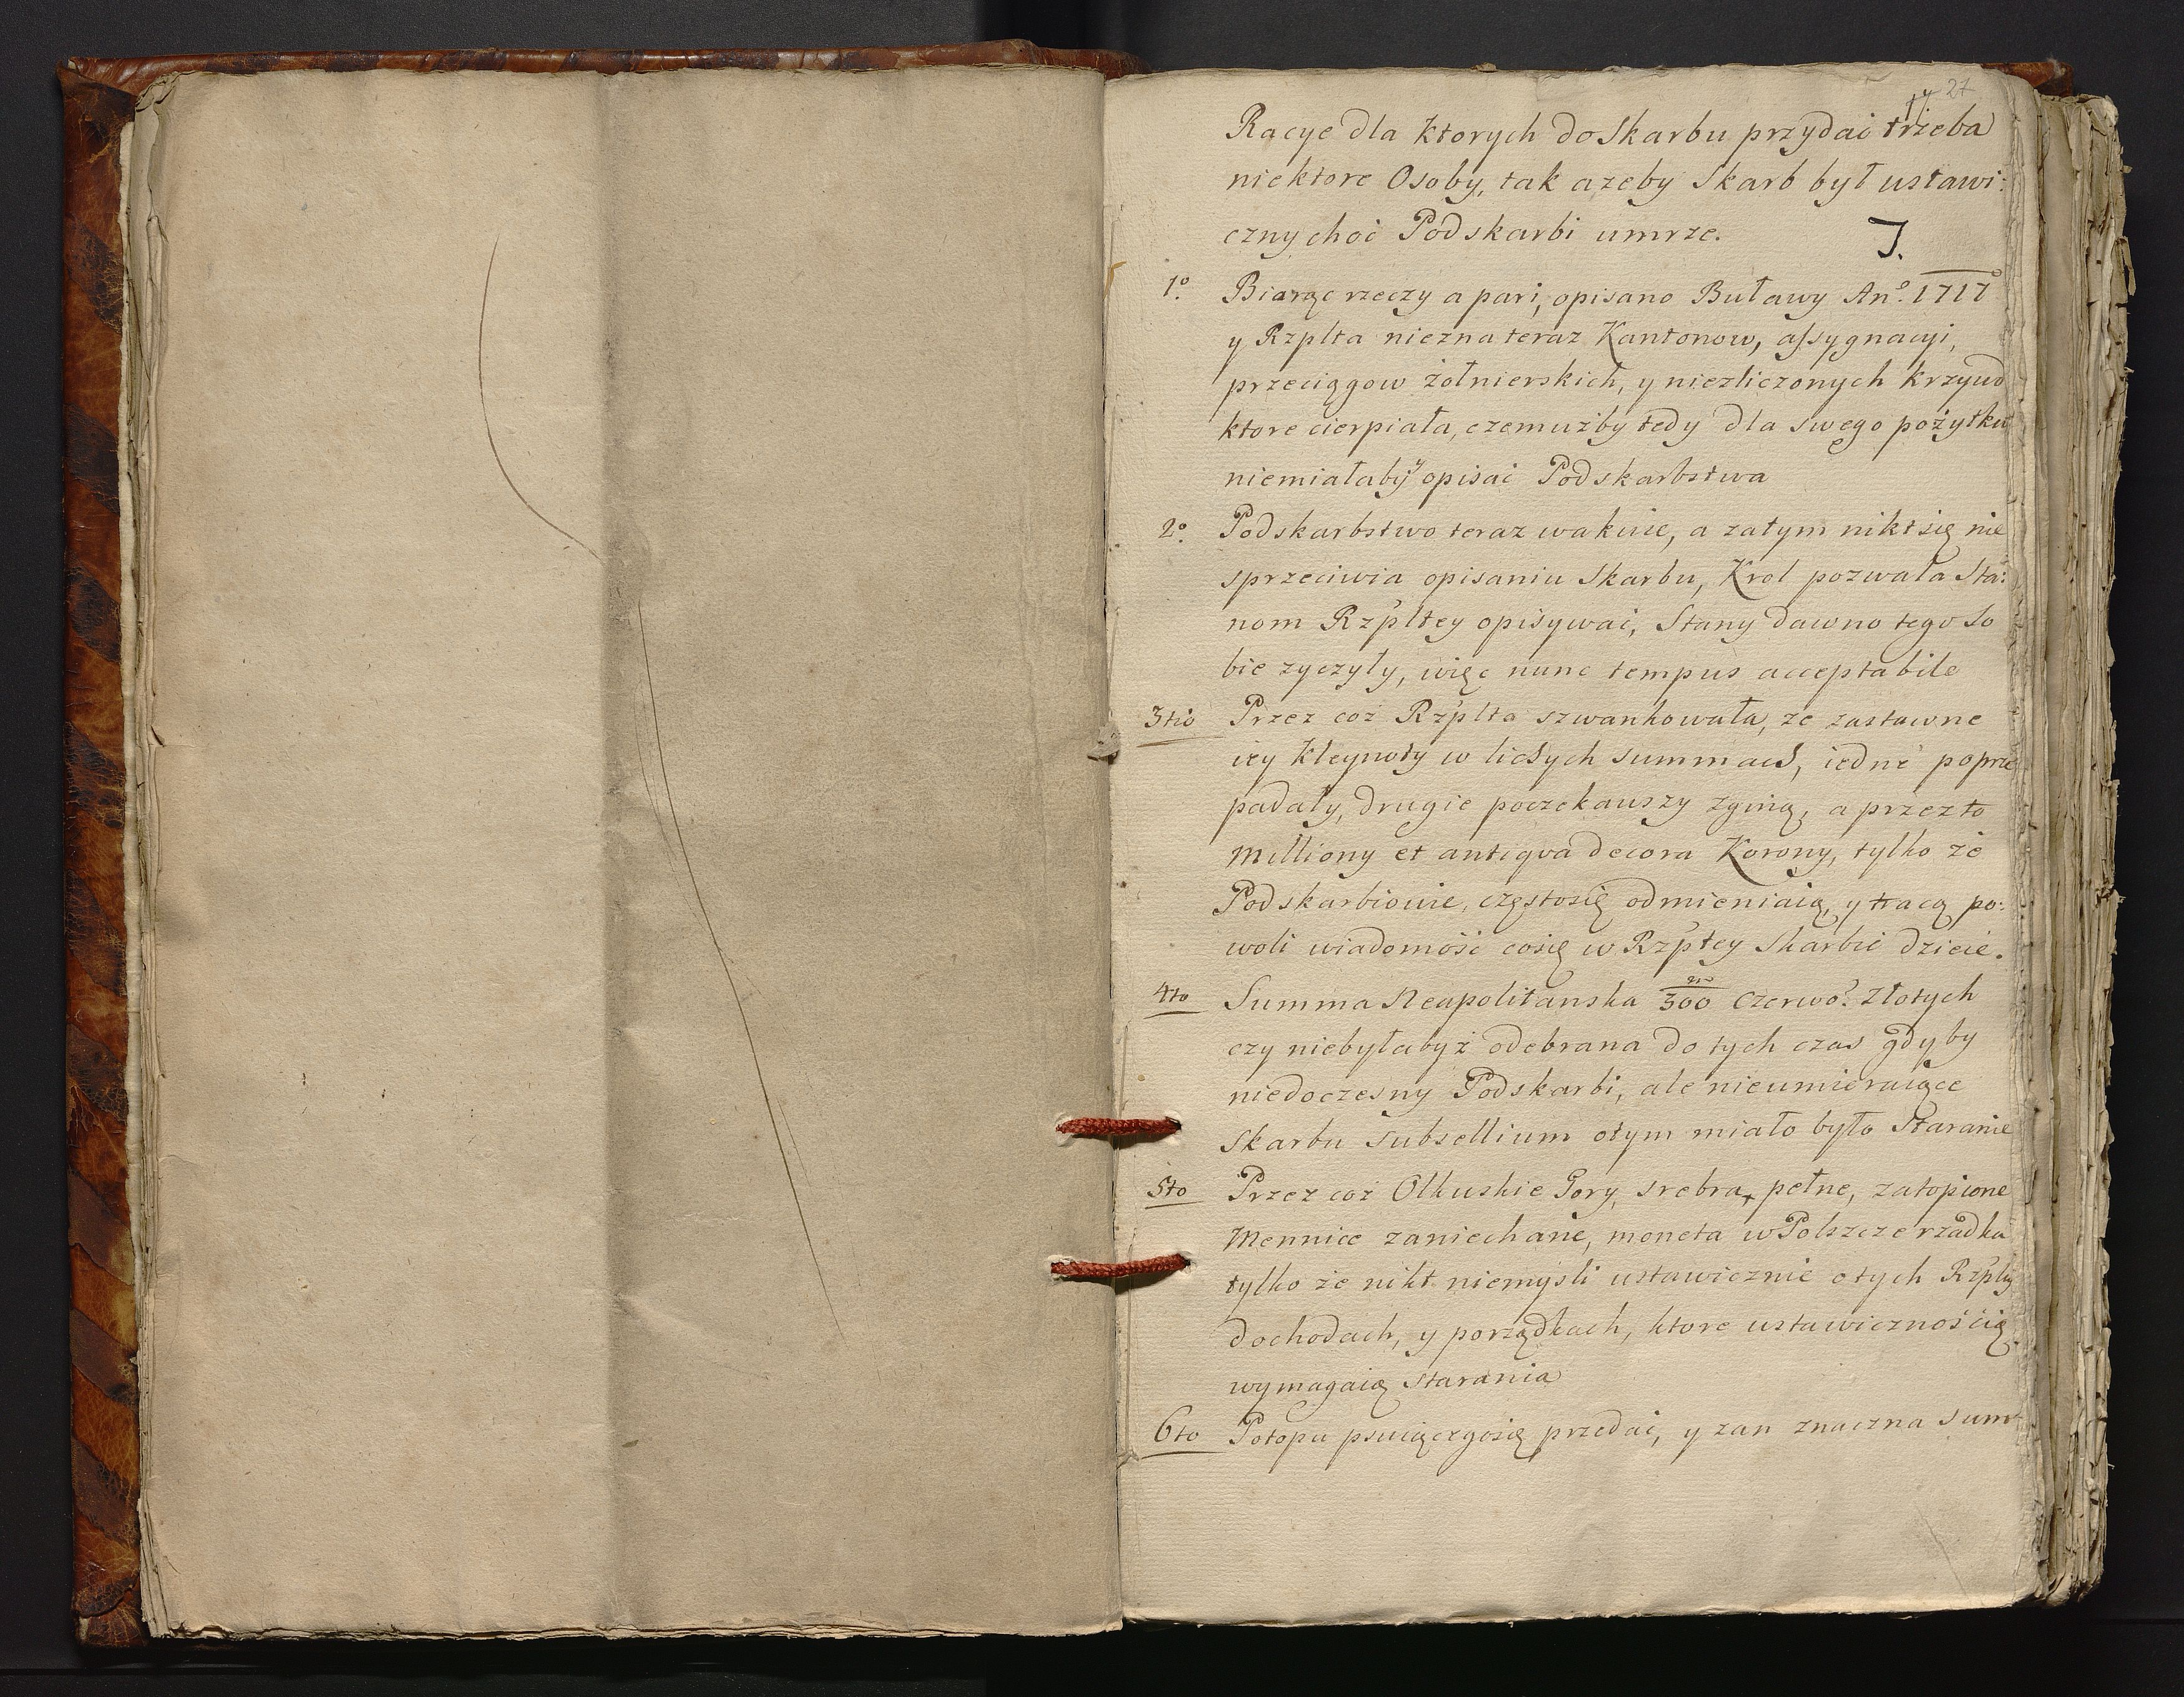 27
Racye dla ktorych do Skarbu przydać trzeba
niektore Osoby, tak azeby Skarb był ustawi:
czny choć Podskarbi umrze.
J.
1º Biorąc rzeczy a pari, opisano Buławy Anº. 1717
y Rzplta niezna teraz Kantonow, assygnacyi,
przeciągow żołnierskich, y niezliczonych krzywd
ktore cierpiała, czemużby tedy dla swego pożytku
niemiałaby opisać Podskarbstwa
2º. Podskarbstwo teraz wakuie, a zatym nikt się nie
sprzeciwia opisaniu Skarbu, Krol pozwala Sta:
nom Rzpltey opisywać, Stany dawno tego so
bie zyczyły, więc nunc tempus acceptabile
3tio Przez coż Rzplta szwankowała, ze zastawne
iey kleynoty w lichych summach, iedne poprze
padały, drugie poczekawszy zginą, a przez to
Milliony et antiqva decora Korony, tylko że
Podskarbiowie, często się odmieniaią, y tracą po:
woli wiadomość co się w Rzptey Skarbie dzieie.
4to Summa Neapolitanska 300 czerwo: Złotych
czy niebyłabyż odebrana do tych czas gdyby
niedoczesny Podskarbi, ale nieumieraiące
Skarbu subsellium otym miało było Staranie
5to Przez coż Olkuskie Gory, srebra pełne, zatopione
Mennice zaniechane, moneta w Polszcze rzadka
tylko że nikt niemyśli ustawicznie o tych Rzpltey
dochodach, y porządkach, ktore ustawicznością
wymagaią starania
6to Potopu przedać, y zan znaczna sum